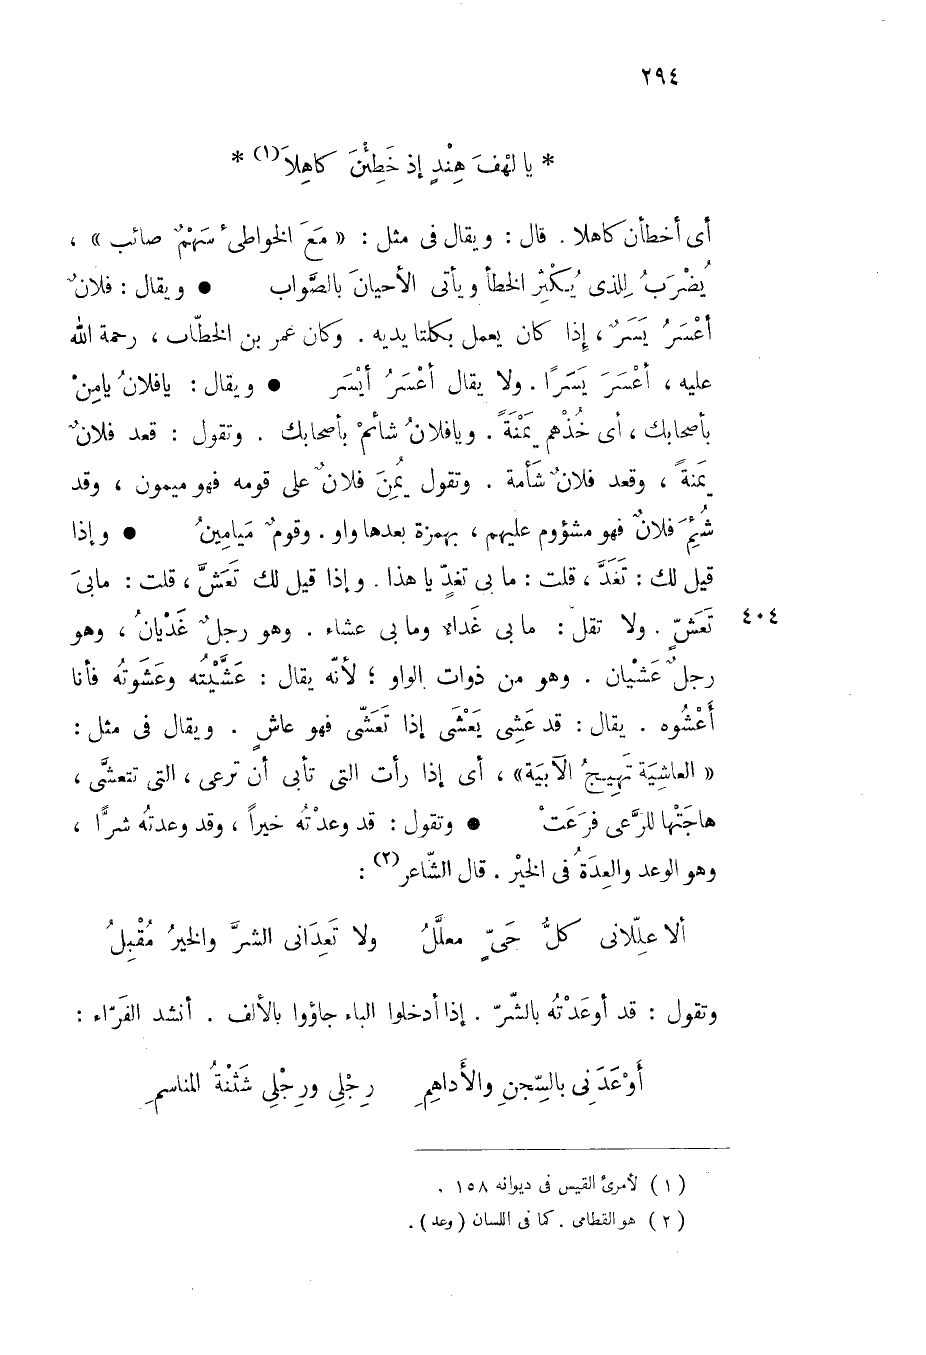 ٢٩٤
* يا لهْفَ هِنْدٍ إذ خَطِئْنَ كاهِلاَ (١) *
أى أخطأن كاهلا . قال : ويقال فى مثل : « مَعَ الخواطئ سَهْمٌ صائب » ،
يُضْرَبُ لِلذى يُكْثِر الخطأ ويأتى الأحيانَ بالصَّواب ● ويقال : فلانٌ
أعْسَرُ يَسَرٌ ، إِذا كان يعمل بكلتا يديه . وكان عمر بن الخطّاب ، رحمة الله
عليه ، أعْسَرَ يَسَرًا . ولا يقال أعْسَرُ أيْسَر ● ويقال : يافلانُ يامِنْ
بأصحابك ، أى خُذْهم يَمْنَةً . ويافلانُ شائمْ بأصحابك . وتقول : قعد فلانٌ
يَمنةً ، وقعد فلانٌ شَأمة . وتقول يُمِنَ فلانٌ على قومه فهو ميمون ، وقد
شُئِمَ فلانٌ فهو مشؤوم عليهم ، بهمزة بعدها واو . وقومٌ مَيامِينُ ● وإذا
قيل لك : تَغَدَّ ، قلت : ما بى تغدٍّ يا هذا . وإذا قيل لك تَعَشَّ ، قلت : مابىَ
تَعَشّ . ولا تقل : ما بى غَداء وما بى عشاء . وهو رجلٌ غَدْيانُ ، وهو
٤٠٤
رجلٌ عَشْيان . وهو من ذوات الواو ؛ لأنّه يقال : عَشَّيْتُه وعَشَوتُه فأنا
أَعْشُوه . يقال : قد عَشِى يَعْشَى إذا تَعَشّى فهو عاشٍ . ويقال فى مثل :
« العاشِيَة تَهِيجُ الآبيَة» ، أى إذا رأت التى تأبى أن ترعى ، التى تتعشَّى ،
هاجَتْها للرَّعى فرَعَتْ ● وتقول : قد وعدْتُه خيراً ، وقد وعدتُه شرًّا ،
وهو الوعد والعِدَةُ فى الخيْر . قال الشّاعر (٢) :
ألا علِّلانى كلُّ حَىٍّ معلَّلُ ولا تَعِدَانى الشرَّ والخيرُ مُقْبِلُ
وتقول : قد أوعَدْتُه بالشّرّ . إذا أدخلوا الباء جاؤوا بالألف . أنشد الفَرّاء :
أوْعَدَنى بالسِّجنِ والأَداهِمِ رِجْلِى ورِجْلِى شَثْنَةُ المناسمِ
(١) لأمرئ القيس فى ديوانه ١٥٨ .
(٢) هو القطامى . كما فى اللسان (وعد) .